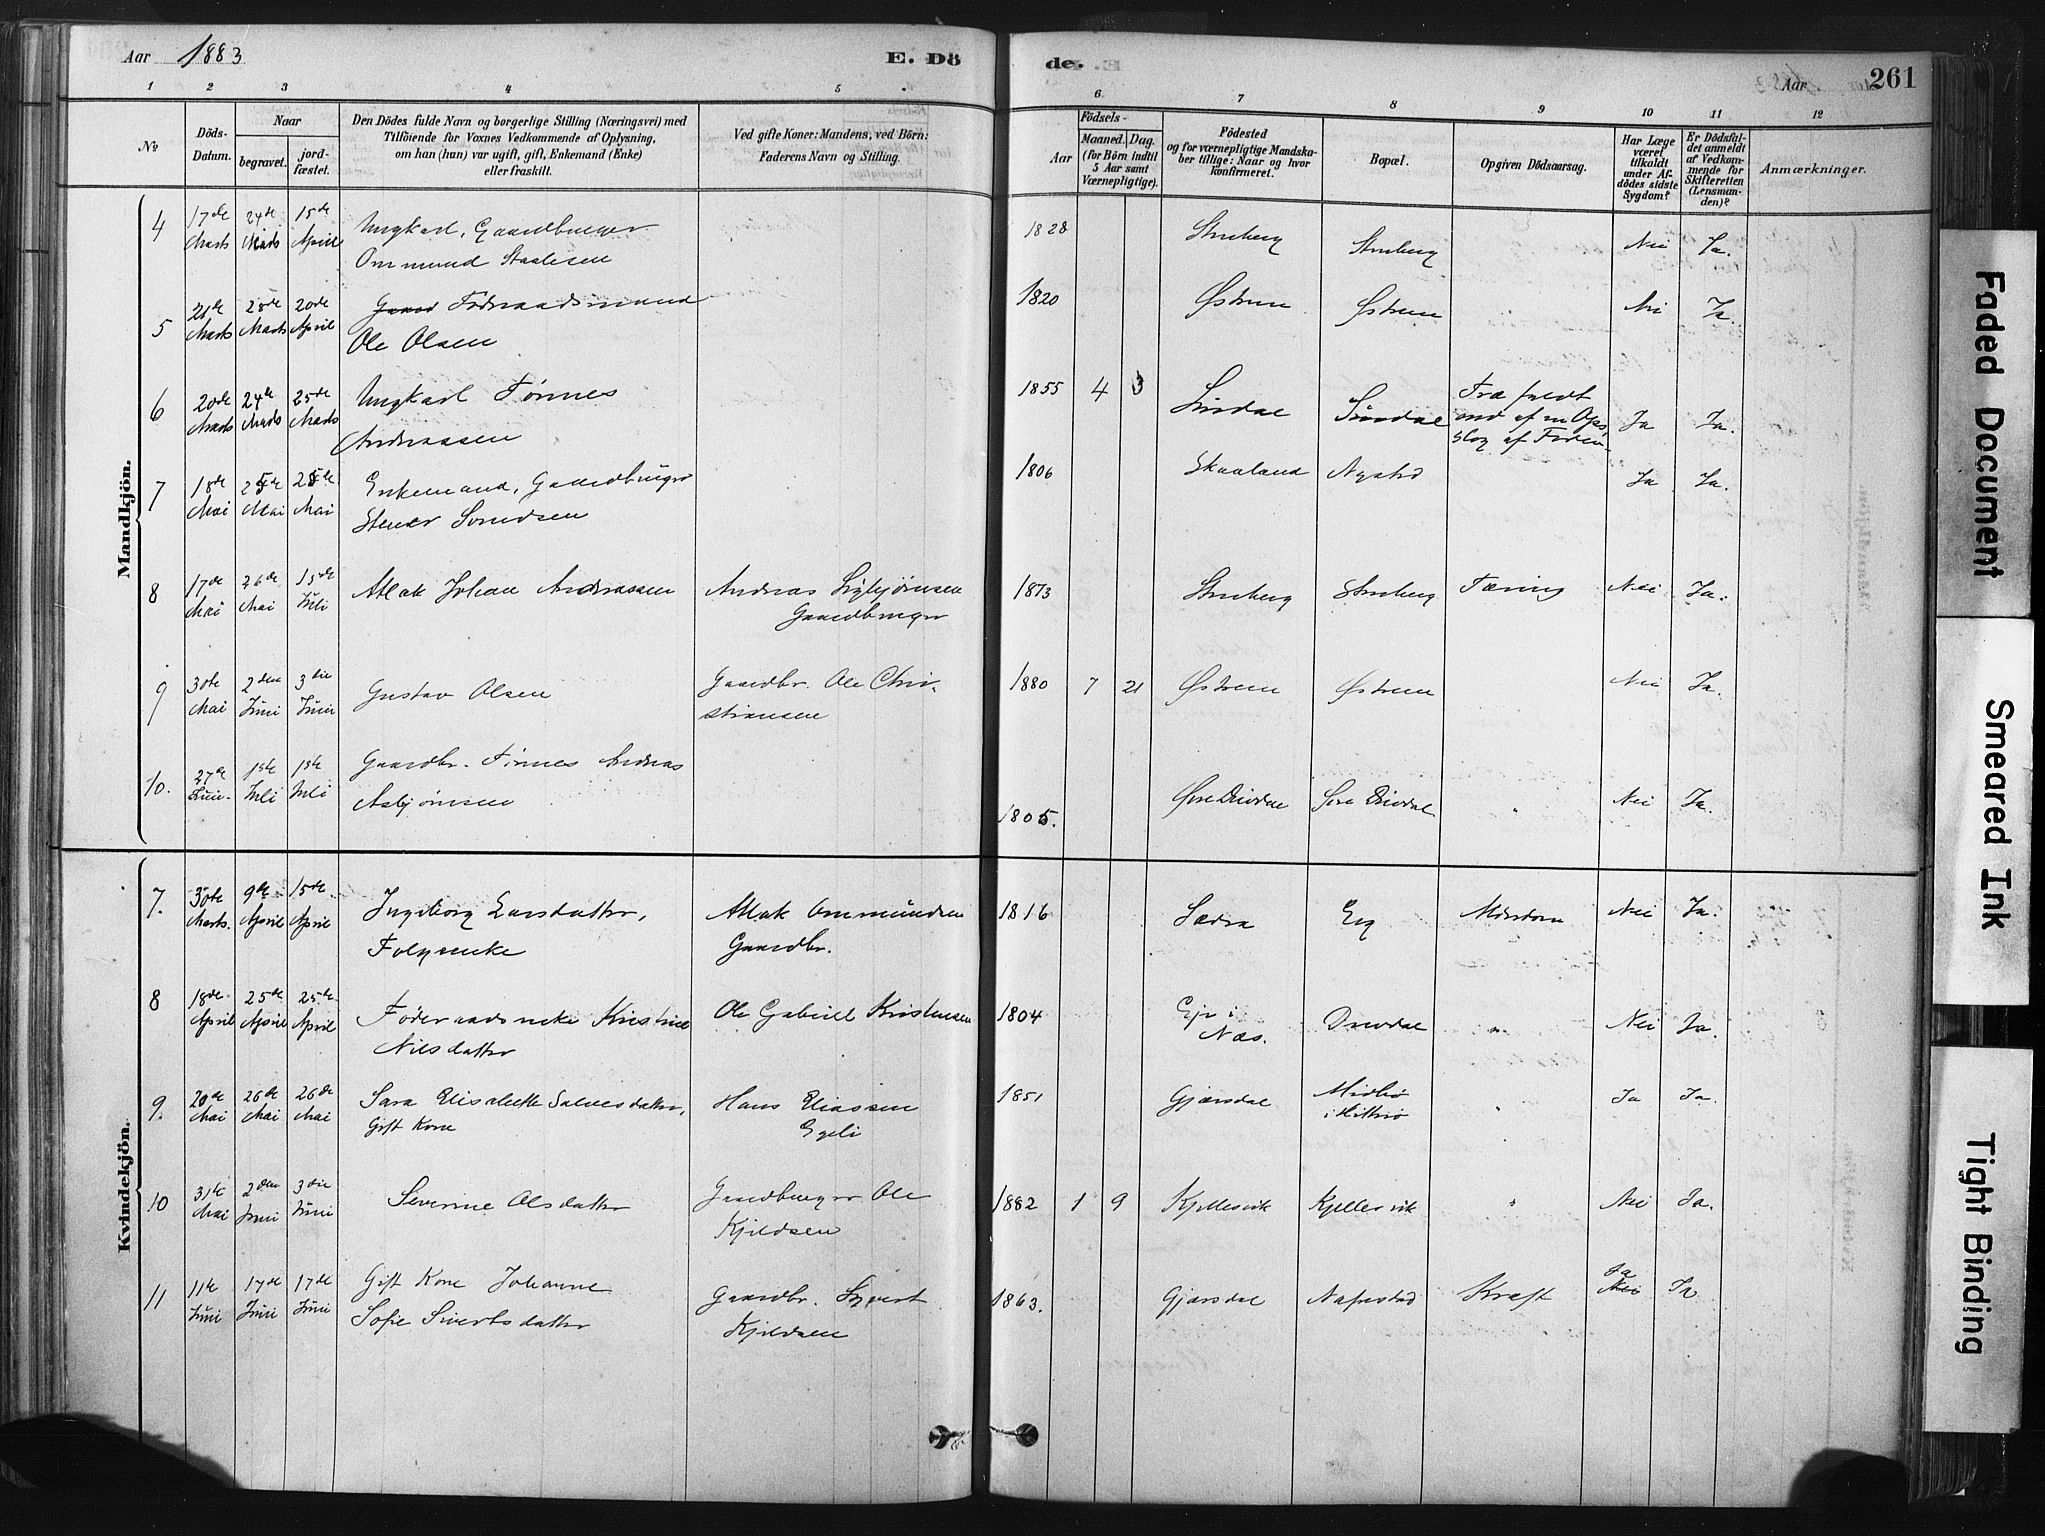 Aar 1883 E. Dö de. Aar 261
1 2 3 4 5 6 7 8 9 10 11 12
№
Döds-Datum.
Naar
begravet.
jordfæstet.
Den Dödes fulde Navn og borgerlige Stilling (Næringsvei) med
Tilföiende for Voxnes Vedkommende af Oplysning,
om han (hun) var ugift, gift, Enkemand (Enke)
eller fraskilt.
Ved gifte Koner: Mandens, ved Börn:
Faderens Navn og Stilling.
Födsels-
Aar
Maaned. Dag.
(for Börn indtil
5 Aar samt
Værnepligtige).
Födested
og for værnepligtige Mandskaber tillige: Naar og hvor
konfirmeret.
Bopæl.
Opgiven Dödsaarsag.
Har Læge
været
tilkaldt
under Afdödes sidste
Sygdom?
Er Dödsfaldet anmeldt
af Vedkommende for
Skifteretten
(Lensmanden)?
Anmærkninger.
Mandkjön.
4 17de Marts 24de Marts 15de April Ungkarl, Gaardbruger
Ommund Staalesen 1828 Nei Ja.
5 Marts Marts 20de April Gaard Føderaadsmand
Ole Olsen 1820 Østrem Østrem Nei Ja.
6 20de Marts 24de Marts 25de Marts Ungkarl Tønnes
Andreassen 1855 4 3 Sirdal Sirdal Ja Ja.
7 18de Mai Mai Mai Enkemand, Gaardbruger
1806 Skaaland Nystad Ja Ja.
8 17de Mai 26de Mai 15de Juli Atlak Johan Andreassen Andreas Sigbjørnsen
Gaardbruger 1873 Tæring Nei Ja.
9 30te Mai 2den Juni 3die Juni Gustav Olsen Gaardbr. Ole Christiansen 1880 7 21 Østrem Østrem Nei Ja.
10. 27de Juni 1ste Juli 1ste Juli Gaardbr. Tønnes Andreas
Asbjørnsen 1805. Nei Ja.
Kvindekjön.
7. 30te Marts. 9de April 15de April Ingeborg Larsdatter,
Atlak Ommundsen
Gaardbr. 1816 Eeg Nei Ja.
8 18de April 25de April 25de April Føderaadsenke Kristine
Nilsdatter Ole Gabriel Kristensen 1804 Eje i
Næs. " Nei Ja.
9. 20de Mai 26de Mai 26de Mai Sara Elisabeth Salvesdatter,
Gift Kone Hans Eliassen
Egeli 1851 Gjersdal Midbø
i Hitterø " Ja Ja.
10 31te Mai 2den Juni 3die Juni Severine Olsdatter Gaardbruger Ole
Kjeldsen 1882 1 9 Kjellesvik Kjellesvik " Nei Ja.
11 11te Juni 17de Juni 17de Juni Gift Kone Johanne
Sofie Sivertsdatter Gaardbr. Syvert
Kjeldsen 1863. Gjersdal Kræft Ja
Nei Ja
Faded Document
Smeared Ink
Tight Binding